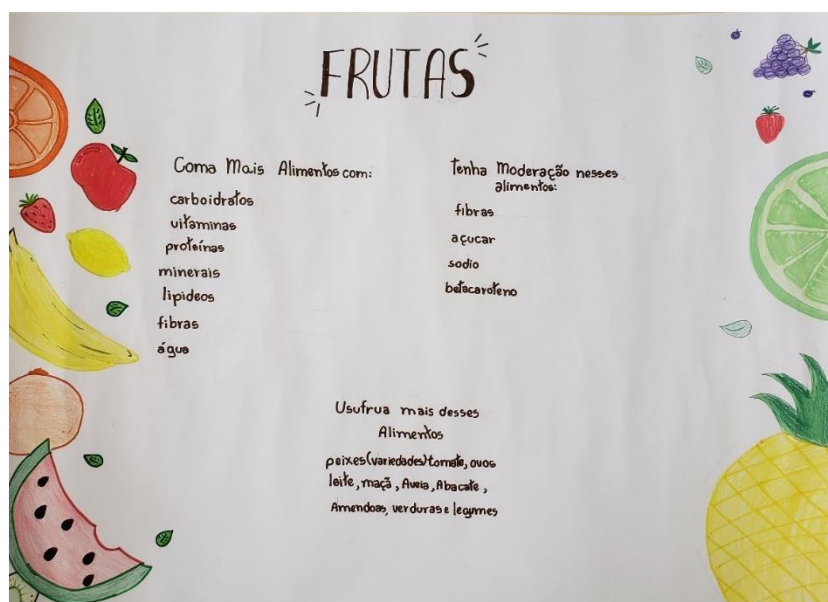 FRUTAS
Coma Mais Alimentos com:
carboidratos
vitaminas
proteínas
minerais
lipideos
fibras
água
Tenha Moderação nesses
alimentos:
fibras
açucar
sodio
betacaroteno
Usufrua mais desses
Alimentos
peixes(variedades)tomate, ovos
leite, maçã, Aveia, Abacate,
Amendoas, verduras e legumes